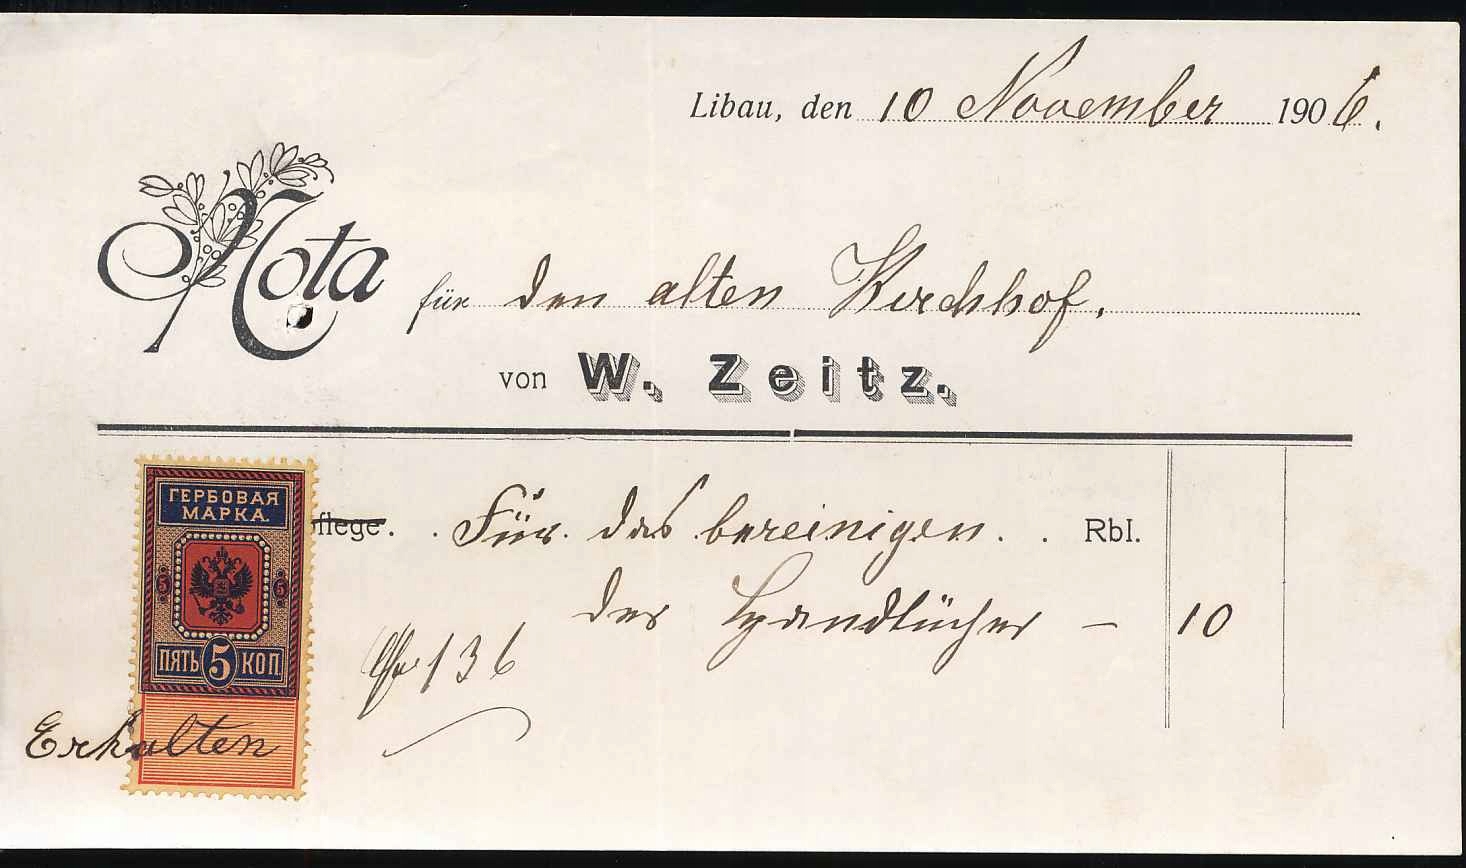 Libau, den 10 November 1906.
Nota für den alten Kirchhof.
von W. Zeitz.
ГЕРБОВАЯ
МАРКА.
flege. . Für. das bereinigen. . Rbl.
der Handtücher — 10
5 5
ПЯТЬ 5 КОП
136
Erhalten